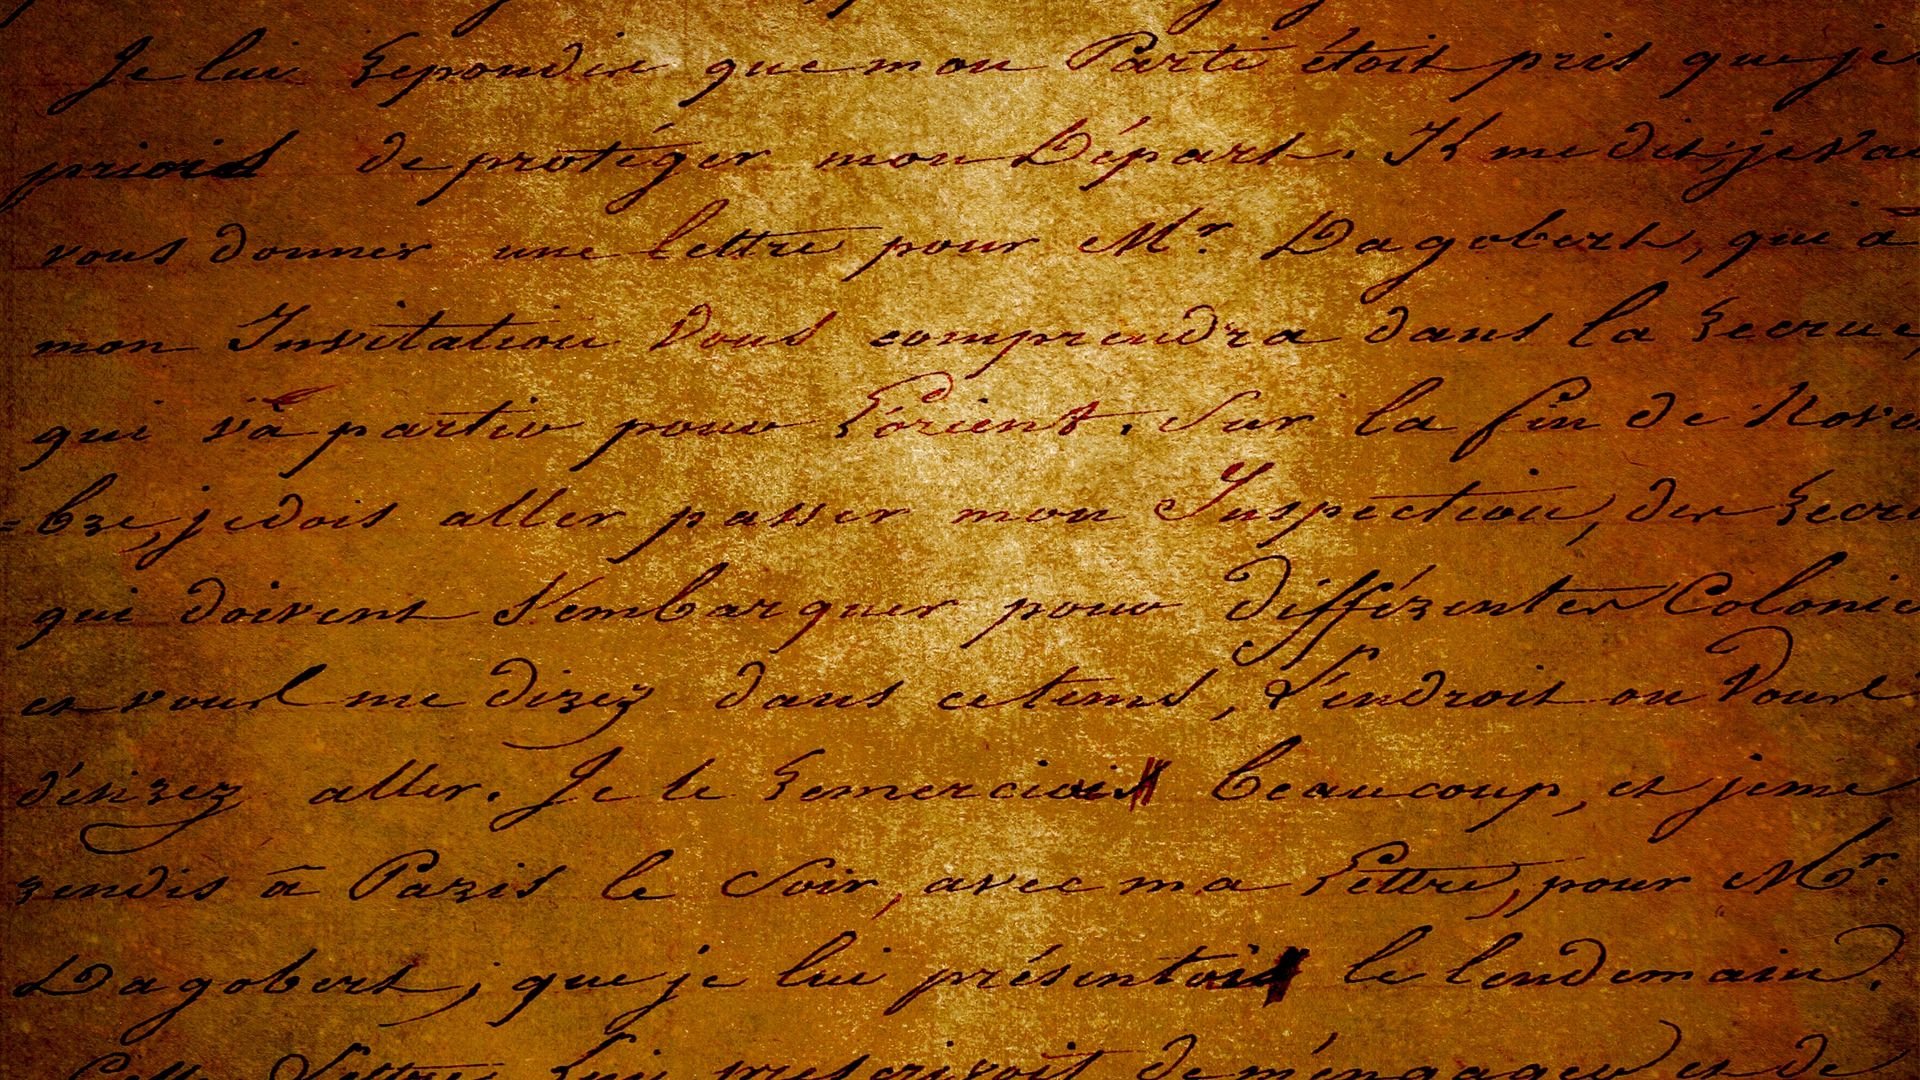 Je lui Repondis que mon Parti étoit pris que je
priois de protéger mon Départ. Il me dit; je vai
vous donner une lettre pour Mr. Dagobert, qui à
mon Invitation vous comprendra dans la Recrue,
qui và partir pour L'orient. Sur la fin de Nove
=bre, je dois aller passer mon Inspection, des Recru
qui doivent s'embarquer pour différentes Colonie
et vous me direz dans ce tems, l'endroit ou Vous
désirez aller. Je le Remerciai beaucoup, et je me
rendis à Paris le Soir, avec ma Lettre, pour Mr.
Dagobert, que je lui présentai le lendemain.
Cette Lettre lui prescrivoit de ménager et de